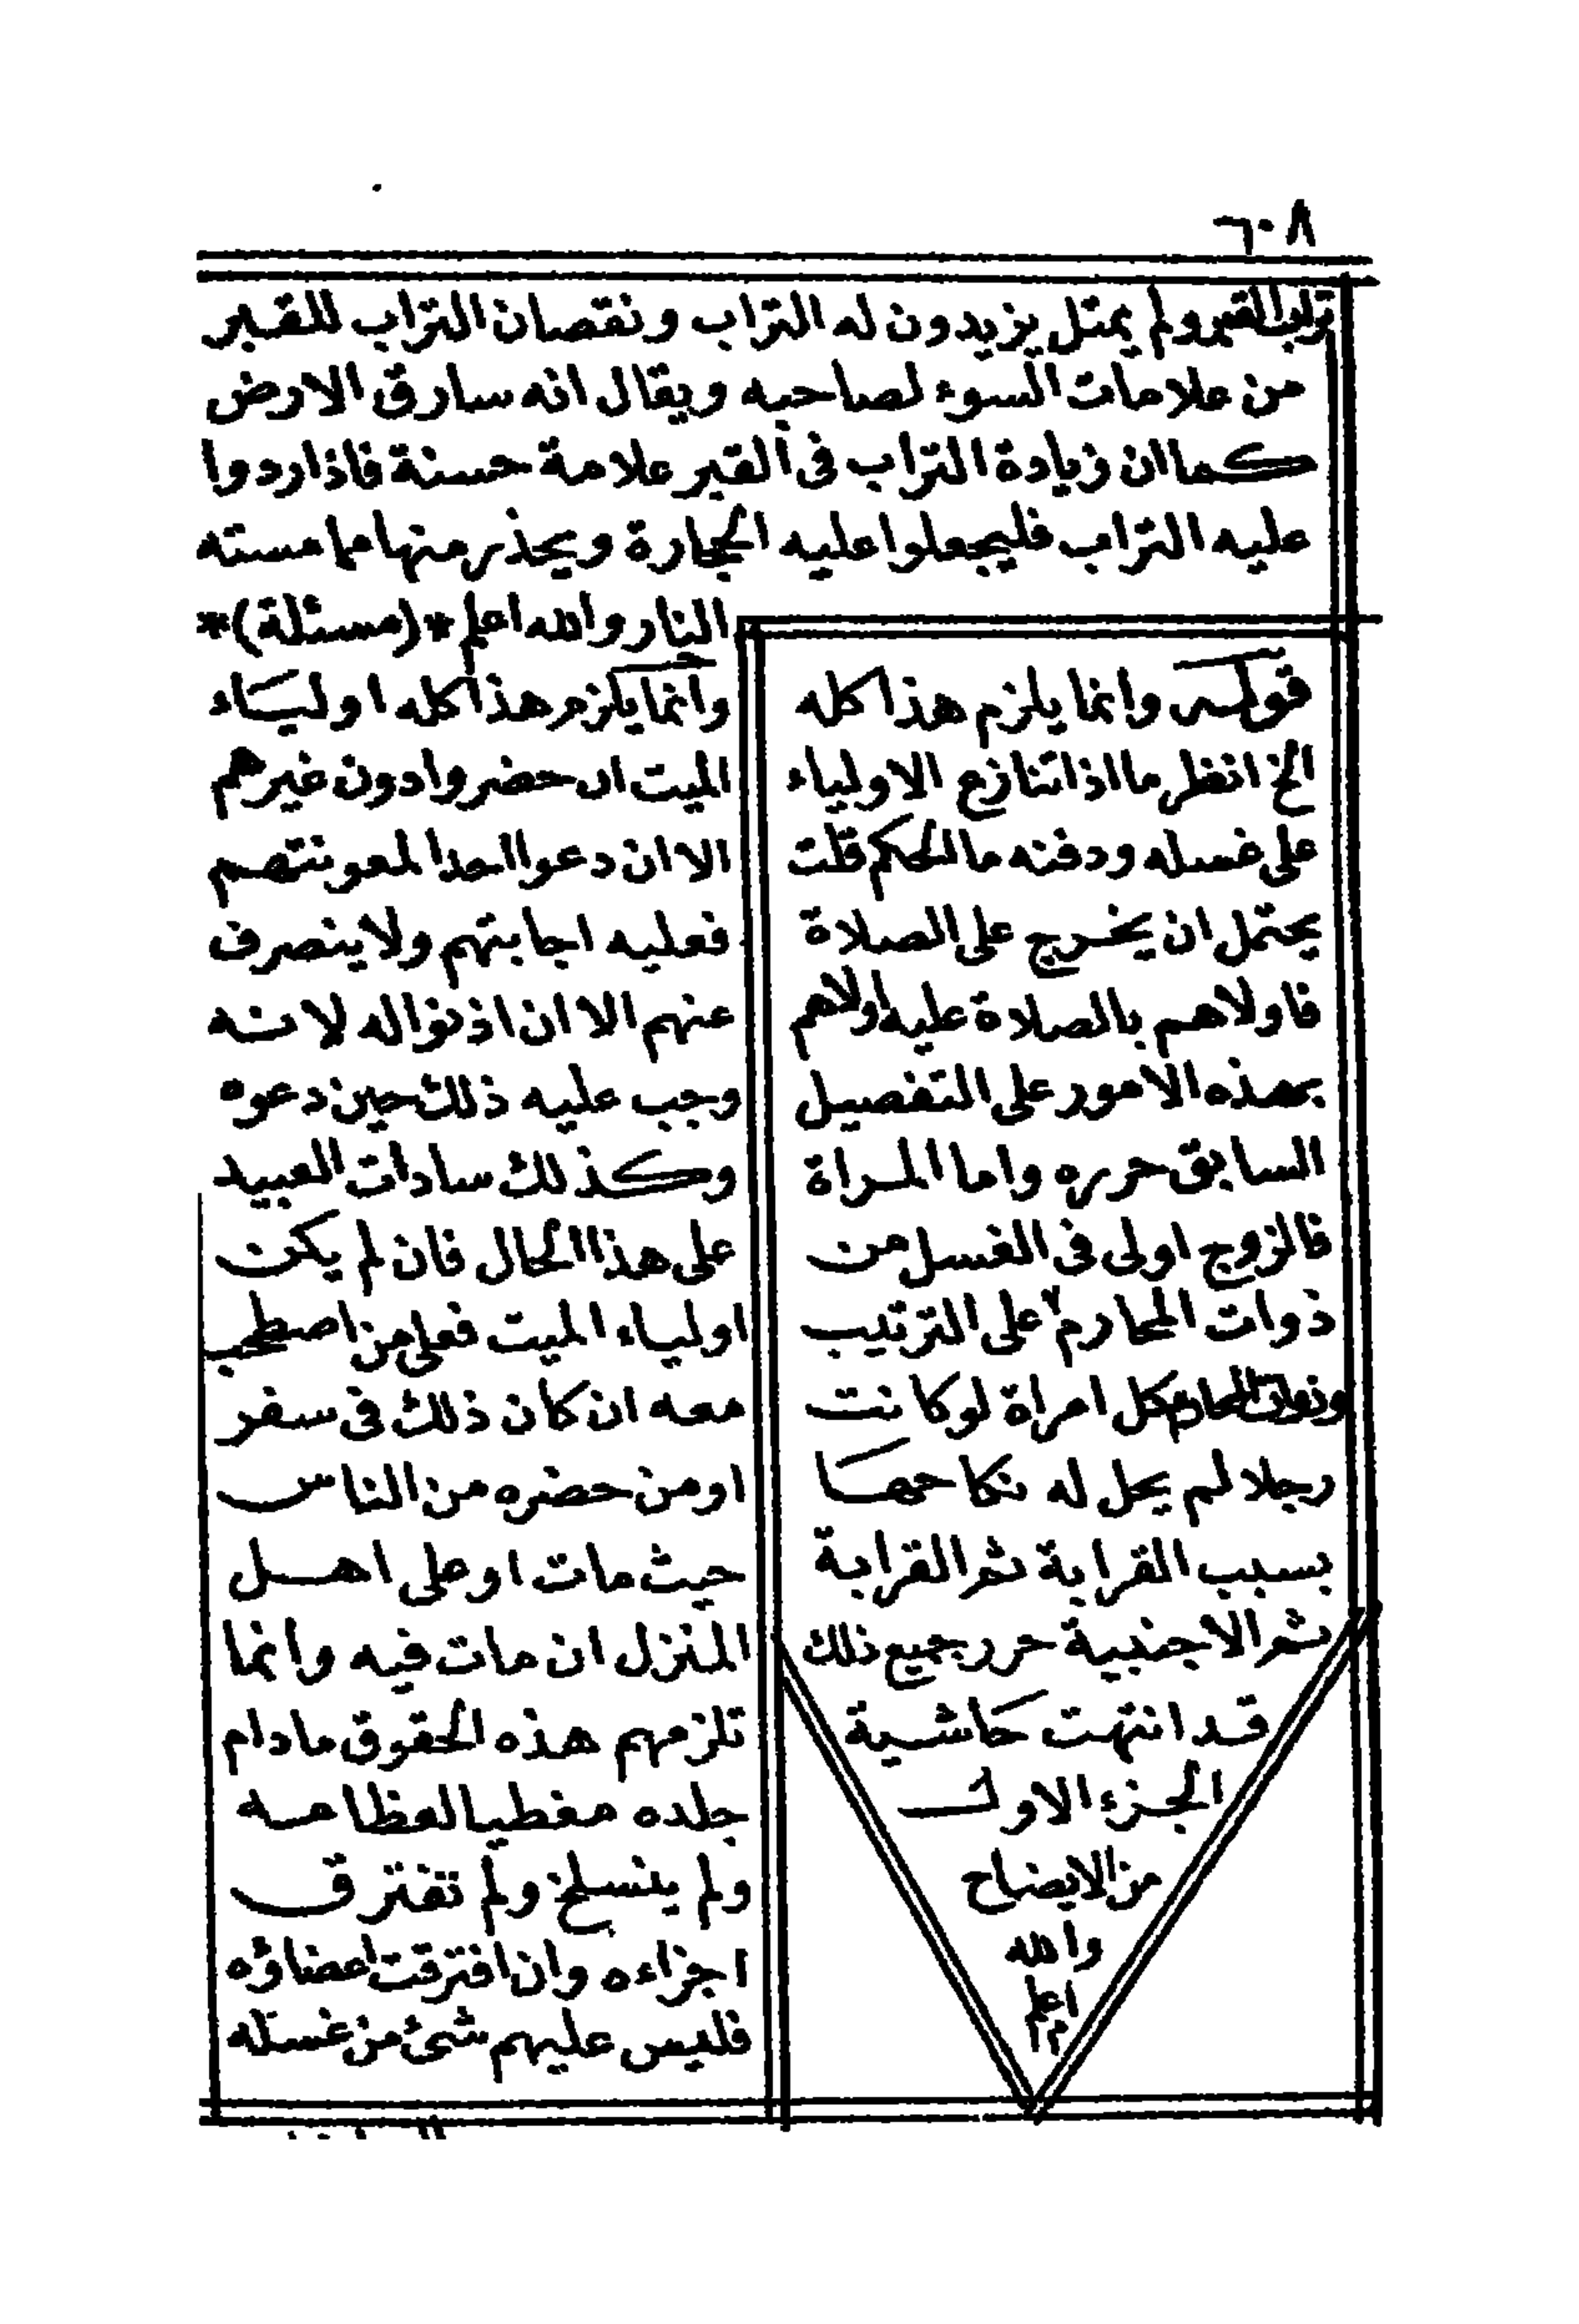 ٦٠٨
تراب القبر ولم يمتل يزيدون له التراب ونقصان التراب للقبر
من علامات السوء لصاحبه ويقال انه سارق الارض
كما ان زيادة التراب فى القبر علامة حسنة فاذا ردوا
عليه التراب فليجعلوا عليه الحجارة ويحذر منها ما مسته
النار والله اعلم *(مسئلة)*
وانما يلزم هذا كله اولياء
الميت ان حضروا دون غيرهم
الا ان دعوا احدا لمعونتهم
فعليه اجابتهم ولا ينصرف
عنهم الا ان اذنوا له لانه
وجب عليه ذلك حين دعوه
وكذلك سادات العبيد
على هذا الحال فان لم يكن
اولياء الميت فعلى من اصطحب
معه ان كان ذلك فى سفر
او من حضره من الناس
حيث مات او على اهل
المنزل ان مات فيه وانما
تلزمهم هذه الحقوق مادام
جلده مغطيا لعظامه
ولم ينسلخ ولم تفترق
اجزاءه وان افترقت اعضاؤه
فليس عليهم شئ من غسله
قوله وانما يلزم هذا كله
الخ انظر ما اذا تنازع الاولياء
على غسله ودفنه ما الحكم قلت
يحتمل ان يخرج على الصلاة
فاولاهم بالصلاة عليه اولاهم
بهذه الامور على التفصيل
السابق حرره واما المراة
فالزوج اولى فى الغسل من
ذوات المحارم على الترتيب
وذوات المحارم كل امراة لو كانت
رجلا لم يحل له نكاحها
بسبب القرابة ثم القرابة
ثم الاجنبية حرر جميع ذلك
قد انتهت حاشية
الجزء الاول
من الايضاح
والله
اعلم
م م